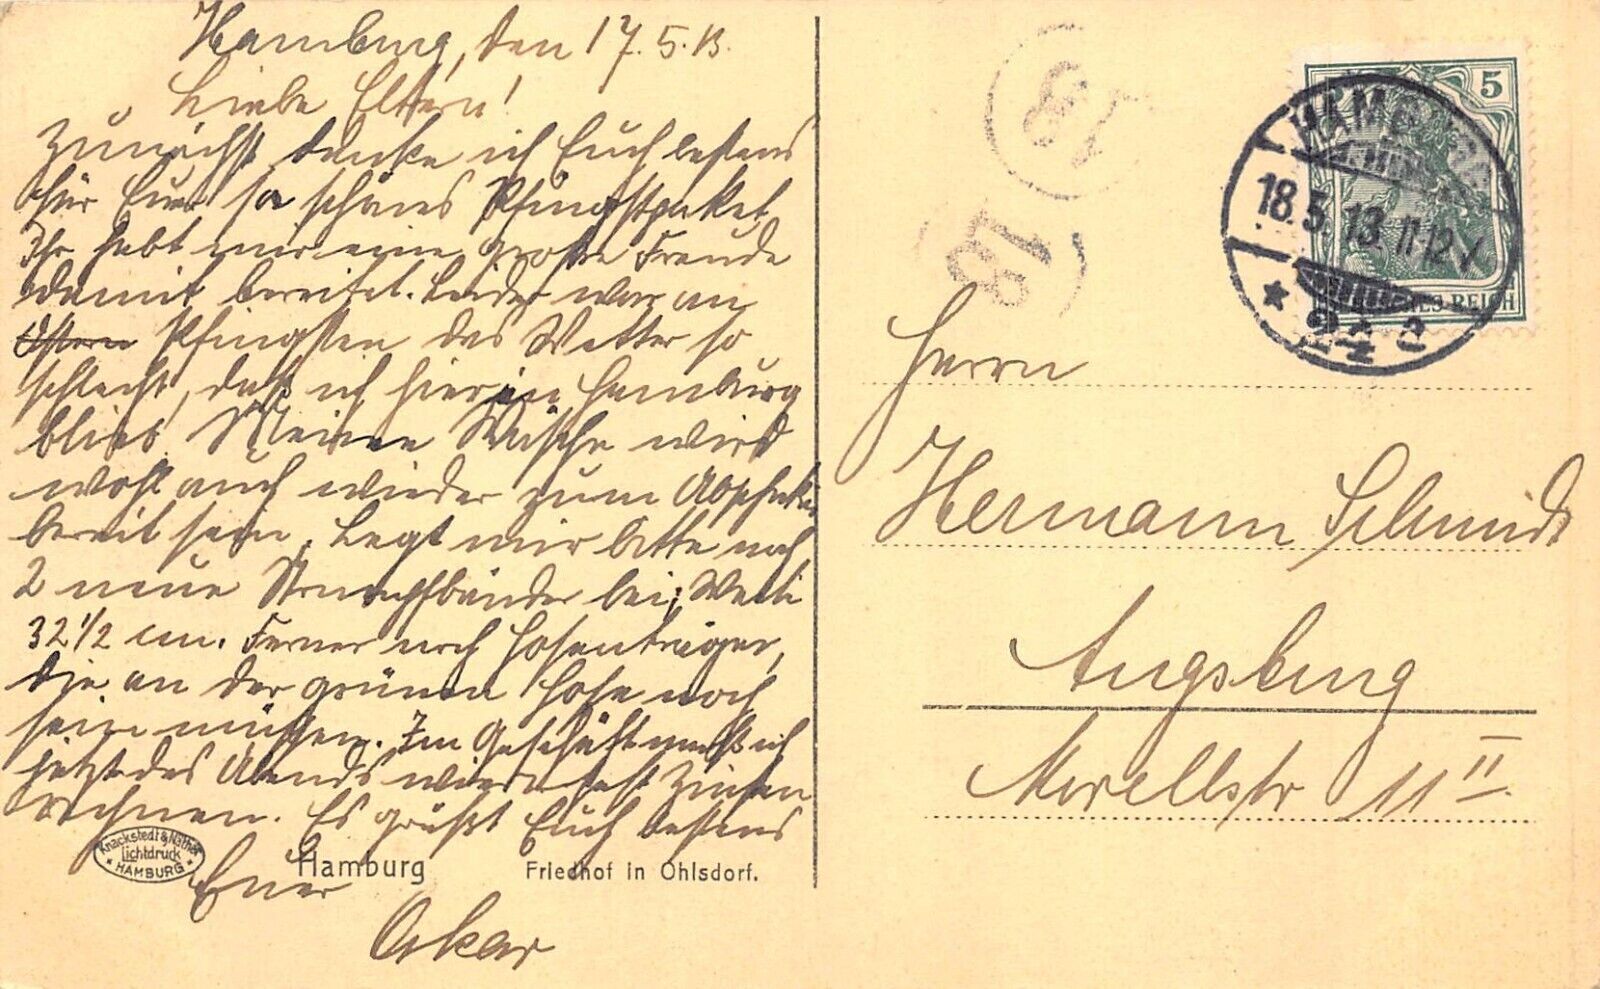 Hamburg, den 17.5.13.
Liebe Eltern!
Zunächst danke ich Euch bestens
für Euer so schönes Pfingstpaket,
Ihr habt mir eine große Freude
damit bereitet. Leider war an
Ostern Pfingsten das Wetter so
schlecht, daß ich hier in Hamburg
blieb. Meine Wäsche wird
wohl auch wieder zum
bereit sein. Legt mir bitte noch
2 neue Strumpfbänder bei; Weite
32 1/2 cm. Ferner noch Hosenträger,
die an der grünen Hose noch
sein müßen. Im Geschäft muß ich
jetzt des Abends wieder fest Zinsen
rechnen. Es grüßt Euch bestens
Euer
Oskar
Knackstedt & Näther
Lichtdruck
HAMBURG
Hamburg Friedhof in Ohlsdorf.
18
18
5
HAMBURG
18.5.13. 11-12 V
* 2
REICH
Herrn
Hermann Schmidt
Augsburg
Morellstr 11 II.